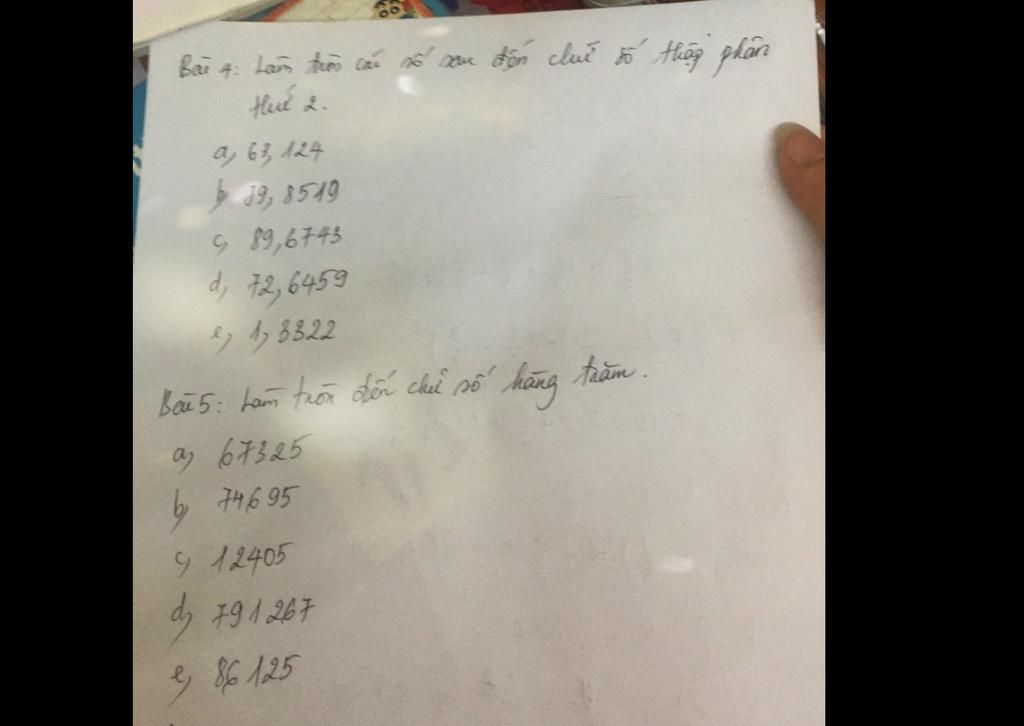 Bài 4: Làm tròn các số sau đến chữ số thập phân
thứ 2.
a, 63, 124
b, 89, 8519
c, 89,6743
d, 72,6459
e, 1, 3322
Bài 5: Làm tròn đến chữ số hàng trăm.
a, 67325
b, 74695
c, 12405
d, 791267
e, 86125